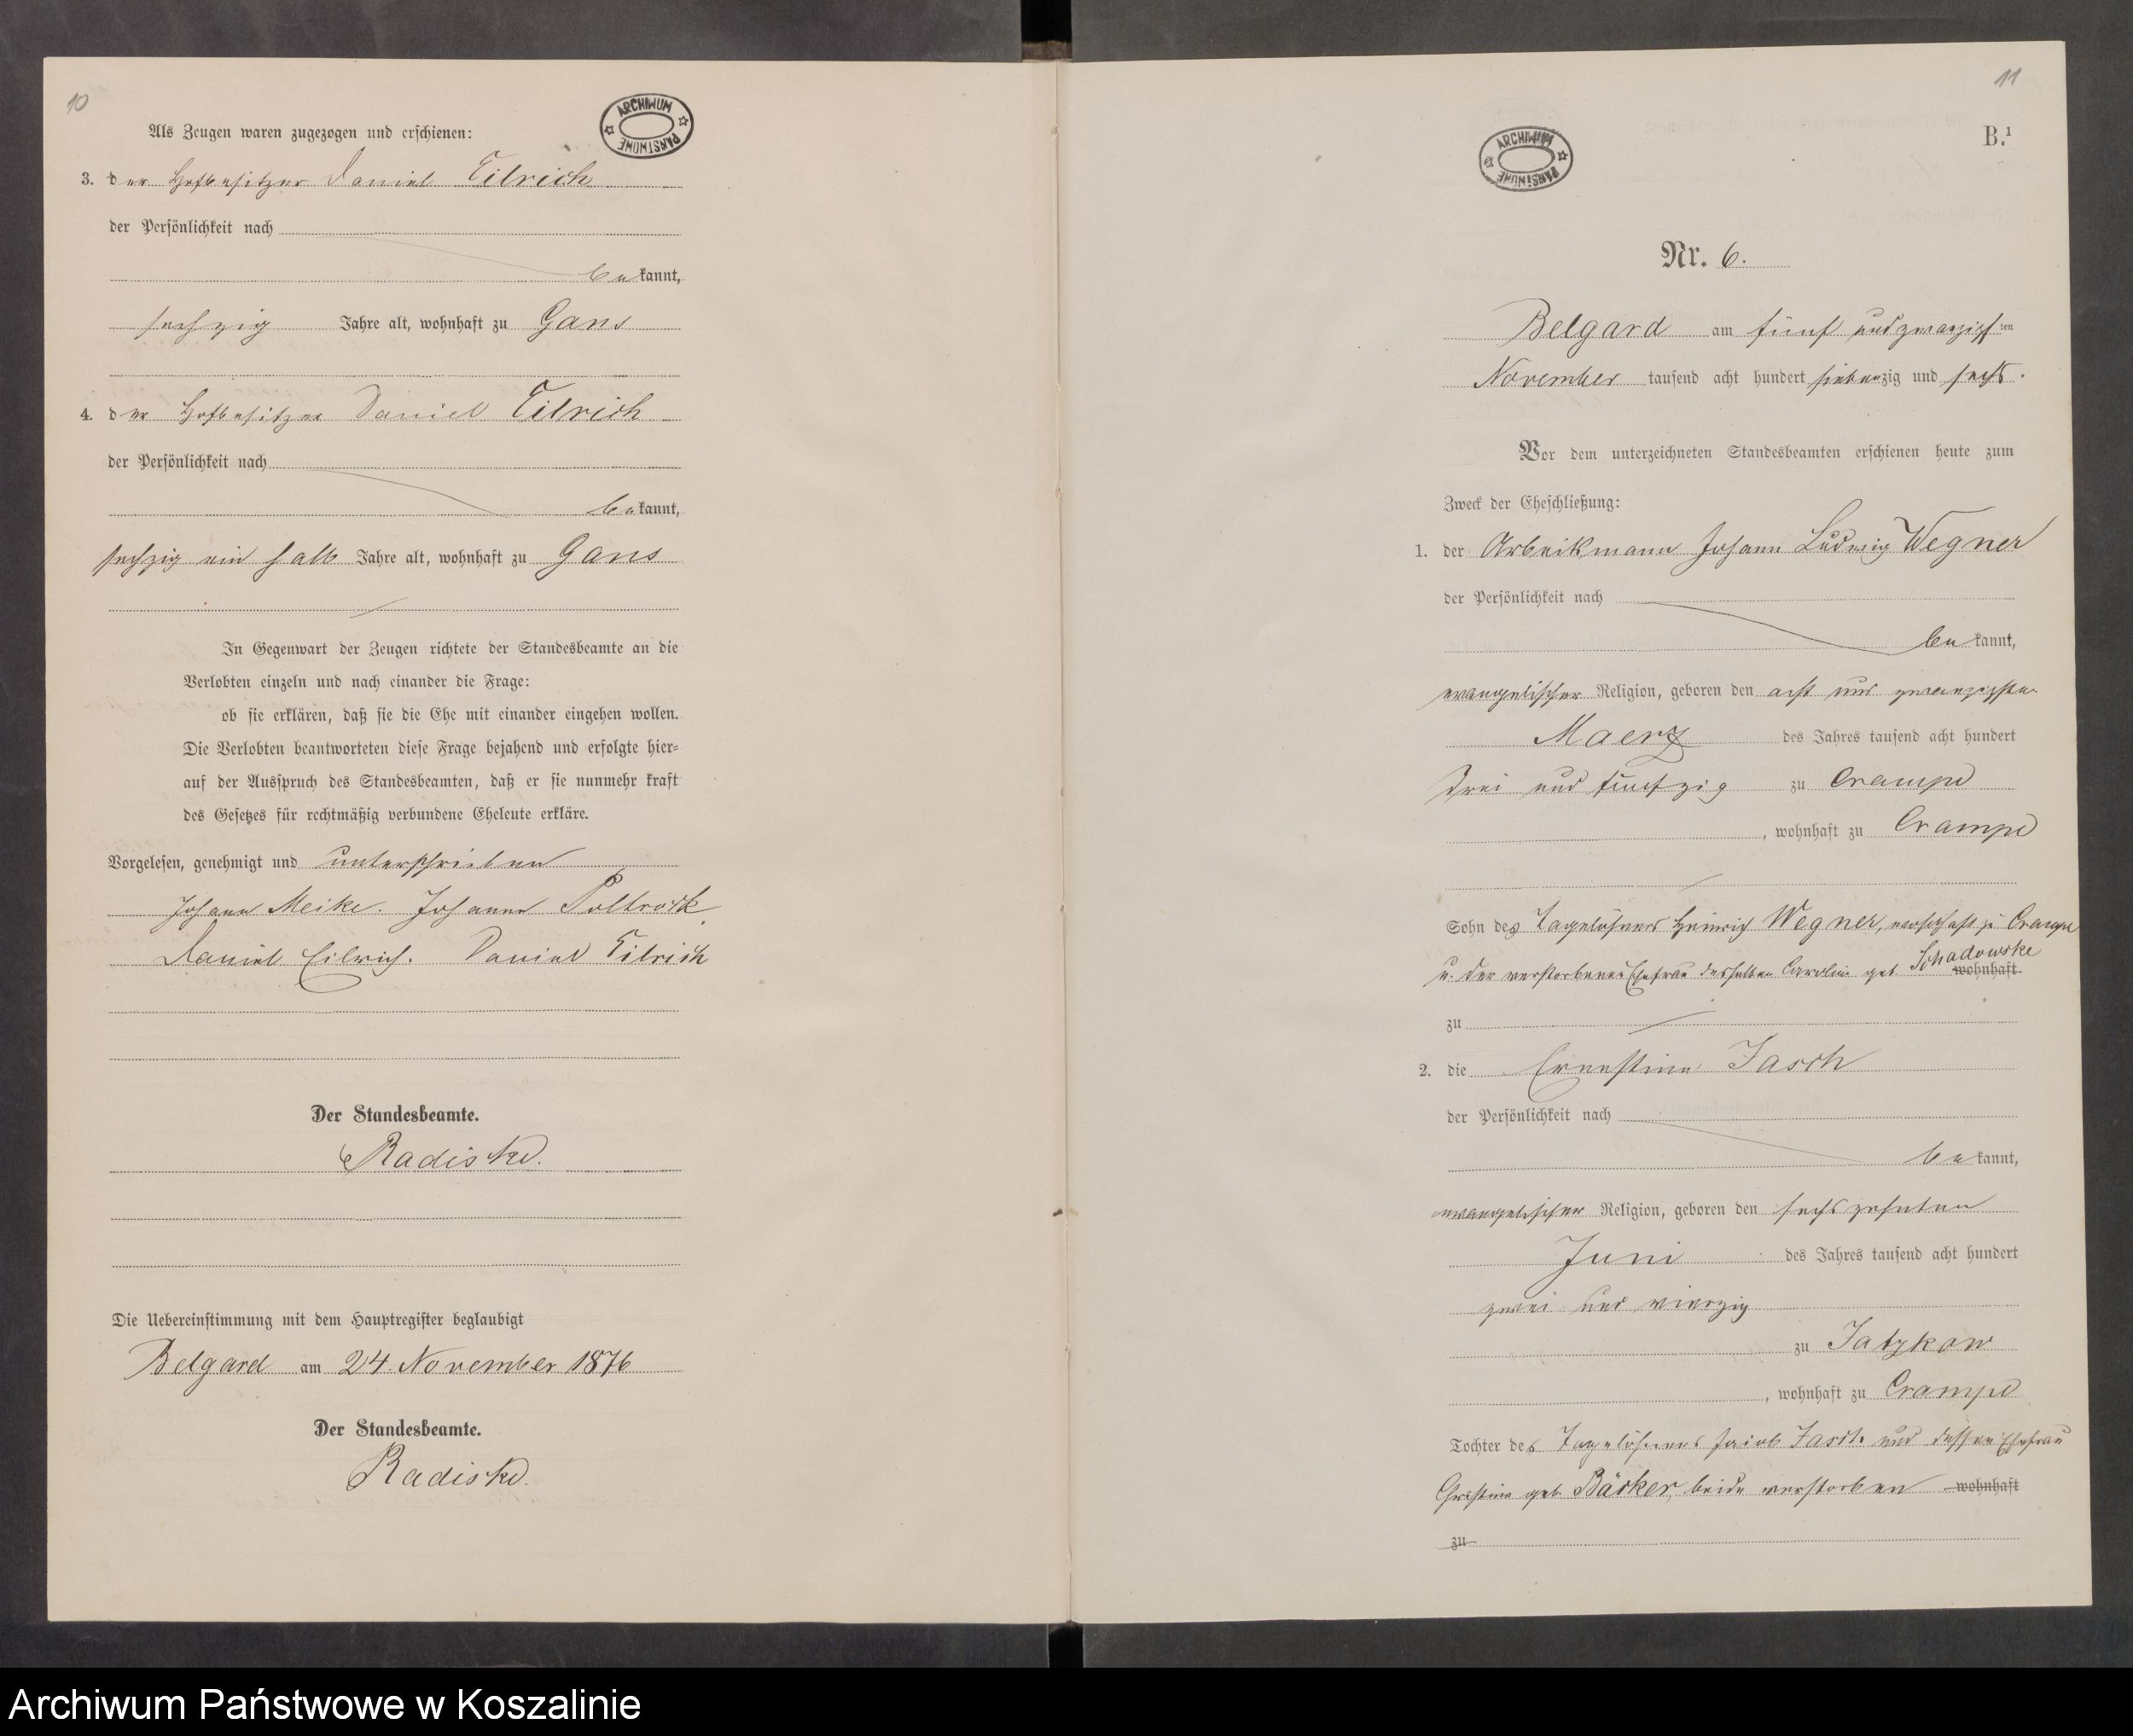 10
Als Zeugen waren zugezogen und erschienen:
ARCHIWUM PAŃSTWOWE
3. der Hofbesitzer Daniel Eilrich
der Persönlichkeit nach
bekannt,
sechzig Jahre alt, wohnhaft zu Gans
4. der Hofbesitzer Daniel Eilrich
der Persönlichkeit nach
bekannt,
sechzig ein halb Jahre alt, wohnhaft zu Gans
In Gegenwart der Zeugen richtete der Standesbeamte an die
Verlobten einzeln und nach einander die Frage:
ob sie erklären, daß sie die Ehe mit einander eingehen wollen.
Die Verlobten beantworteten diese Frage bejahend und erfolgte hier-
auf der Ausspruch des Standesbeamten, daß er sie nunmehr kraft
des Gesetzes für rechtmäßig verbundene Eheleute erkläre.
Vorgelesen, genehmigt und unterschrieben
Johann Meike. Johann Poltrock
Daniel Eilrich. Daniel Eilrich
Der Standesbeamte.
Radiske.
Die Uebereinstimmung mit dem Hauptregister beglaubigt
Belgard am 24. November 1876
Der Standesbeamte.
Radiske.
11
B.¹
ARCHIWUM PAŃSTWOWE
Nr. 6.
Belgard am fünf und zwanzigsten
November tausend acht hundert siebenzig und sechs.
Vor dem unterzeichneten Standesbeamten erschienen heute zum
Zweck der Eheschließung:
1. der Arbeitsmann Johann Ludwig Wegner
der Persönlichkeit nach
bekannt,
evangelischer Religion, geboren den acht und zwanzigsten
Maerz des Jahres tausend acht hundert
drei und fünfzig zu Crampe
, wohnhaft zu Crampe
Sohn des Tagelöhners Heinrich Wegner, wohnhaft zu Crampe
u. der verstorbenen Ehefrau desselben Caroline geb. Schadowske wohnhaft
zu
2. die Ernestine Jasch
der Persönlichkeit nach
bekannt,
evangelischer Religion, geboren den sechszehnten
Juni des Jahres tausend acht hundert
zwei und vierzig
zu Jatzkow
, wohnhaft zu Crampe
Tochter des Tagelöhners Jacob Jasch und dessen Ehefrau
Christine geb. Bäcker, beide verstorben wohnhaft
zu
Archiwum Państwowe w Koszalinie